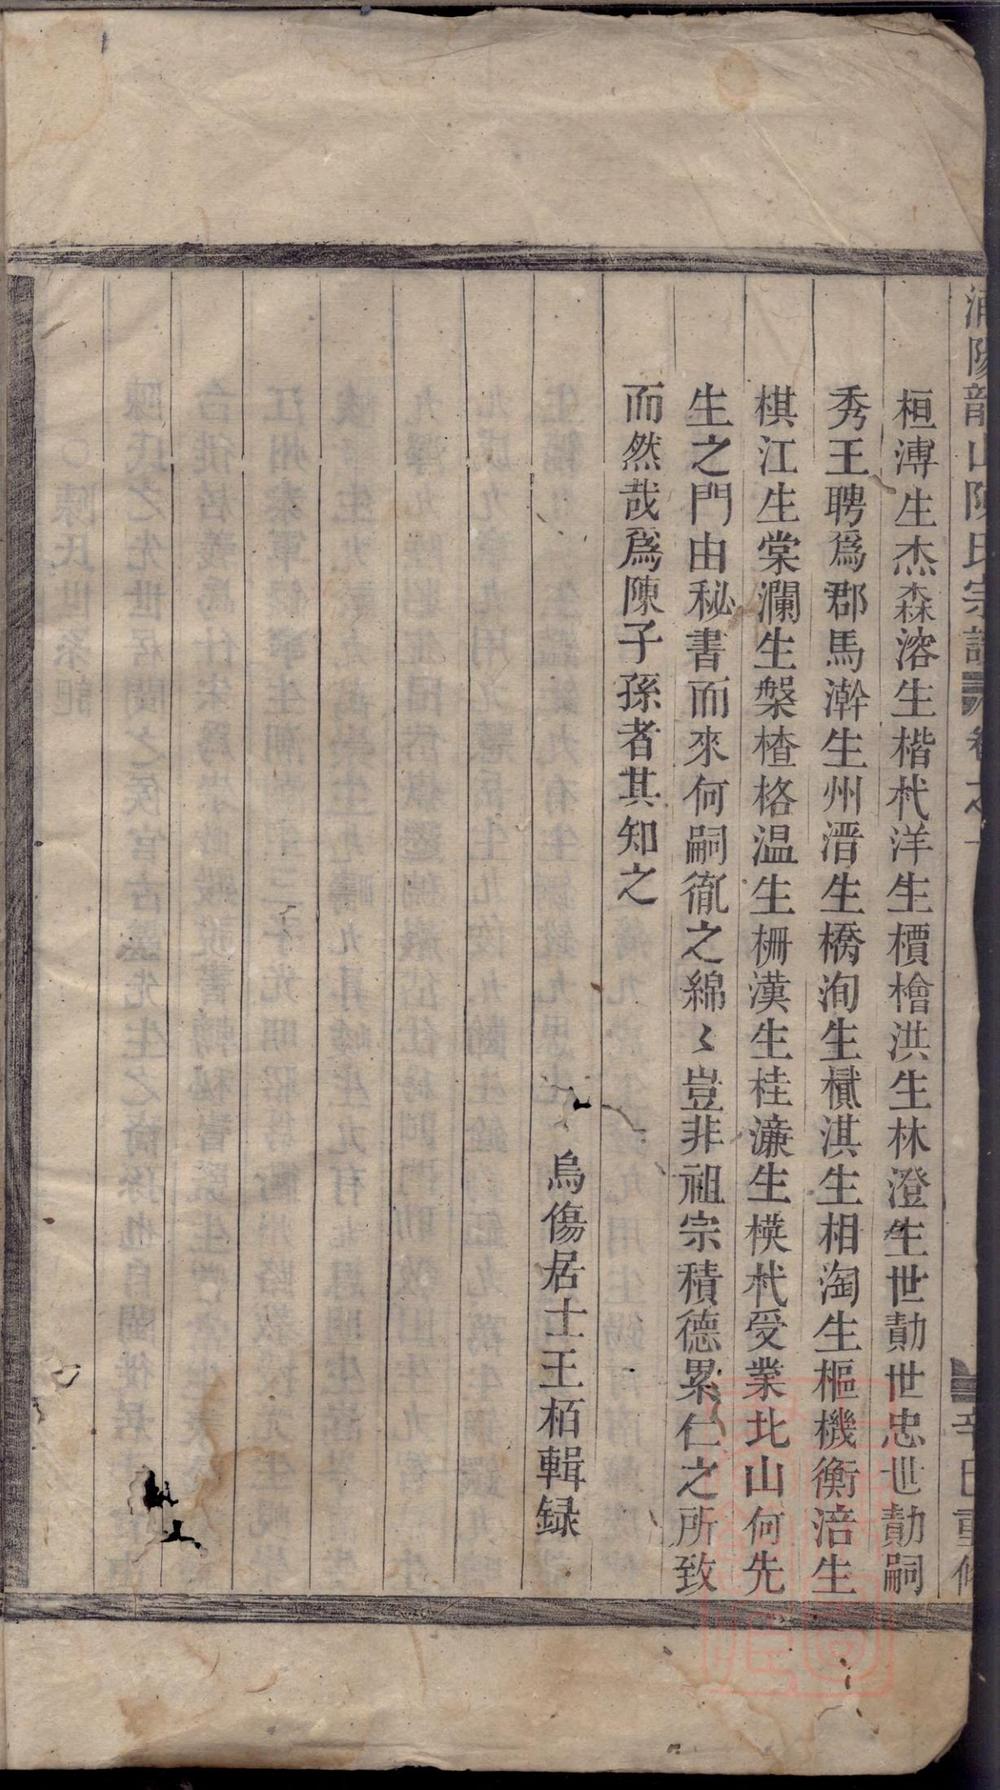 浦陽龍山陳氏宗譜 卷之一 辛巳重修
桓溥生杰森溶生楷杙洋生檟檜洪生林澄生世勣世忠世勣嗣
秀王聘爲郡馬澣生州溍生橋洵生樻淇生相淘生樞機衡涪生
棋江生棠瀾生槃楂格温生柵漢生桂濂生楧杙受業北山何先
生之門由秘書而來何嗣徿之綿〻豈非祖宗積德累仁之所致
而然哉爲陳子孫者其知之
烏傷居士王栢輯録